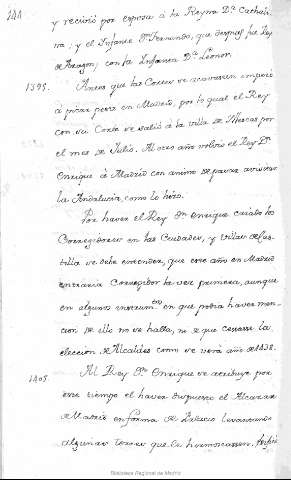 y recivió por esposa á la Reyna D.ª Cathali
na; y el Infante D.n Fernando, que despues fue Rey
de Aragon, con la Infanta D.ª Leonor.
1395. Antes que las Cortes se acavasen empezó
á picar peste en Madrid, por lo qual el Rey
con su Corte se salió á la villa de Illescas por
el mes de Julio. Al otro año volvió el Rey D.n
Enrique á Madrid con animo de pasar a visitar
la Andalucia, como lo hizo.
Por haver el Rey D.n Enrique criado los
Corregidores en las Ciudades, y Villas de Cas
tilla se debe entender, que este año en Madrid
entraria Corregidor la vez primera, aunque
en algunos instrum.tos en que podia haver men
cion de ello no se halla, ni que cesase la
eleccion de Alcaldes como se verá año de 1438.
1405. Al Rey D.n Enrique se atribuye por
este tiempo el haver dispuesto el Alcazar
de Madrid en forma de Palacio levantando
algunas torres que le hermoseasen.
Biblioteca Regional de Madrid